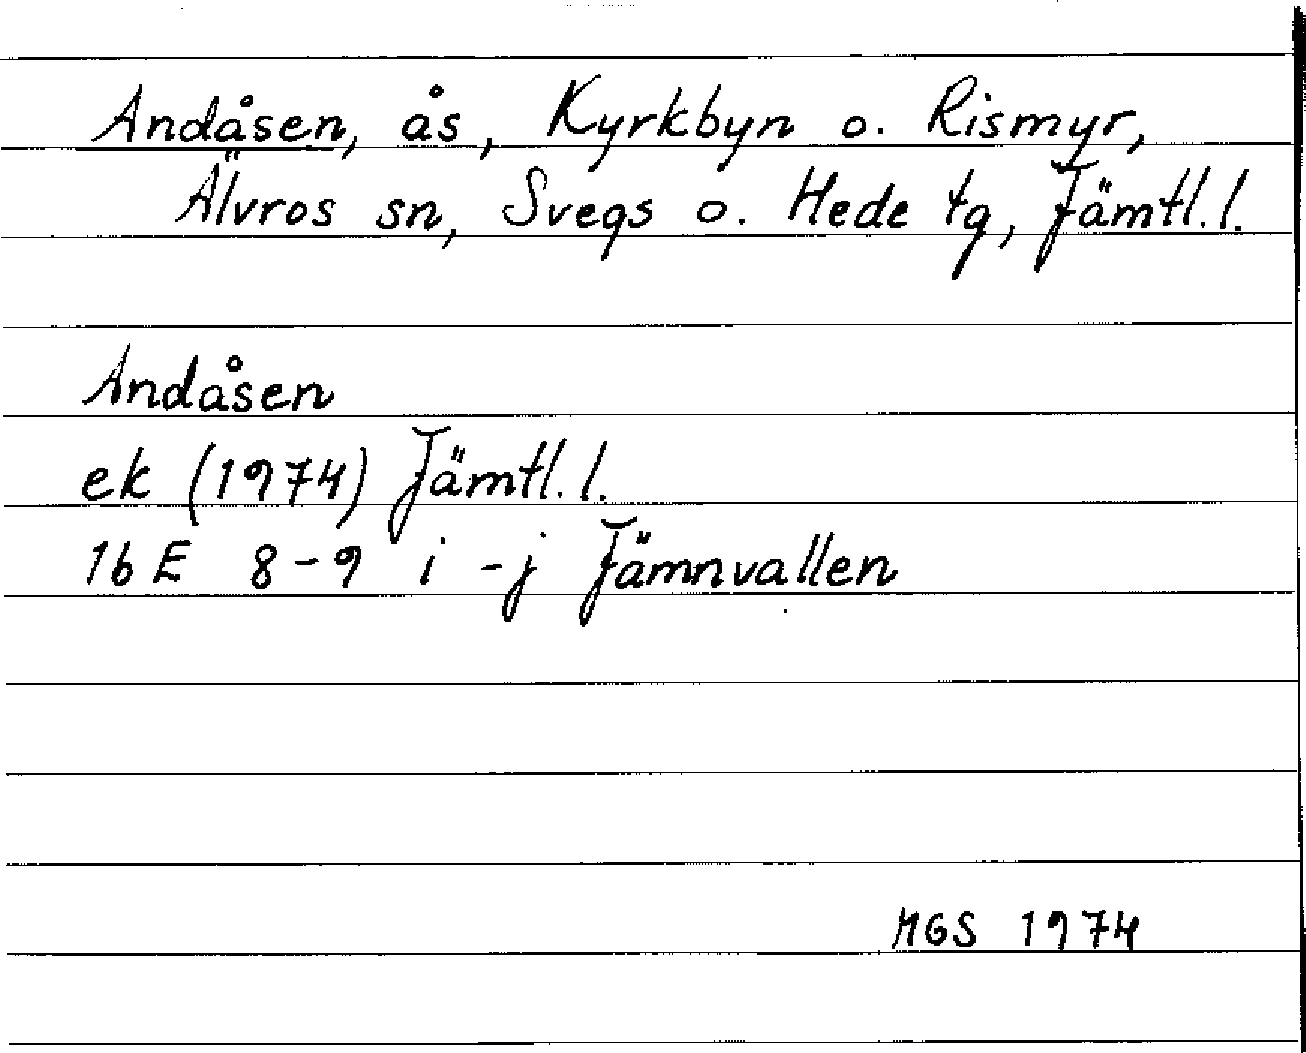 Andåsen, ås, Kyrkbyn o. Rismyr,
Älvros sn, Svegs o. Hede tg, Jämtl. l.
Andåsen
ek (1974) Jämtl. l.
16 E 8-9 i -j Jämnvallen
MGS 1974